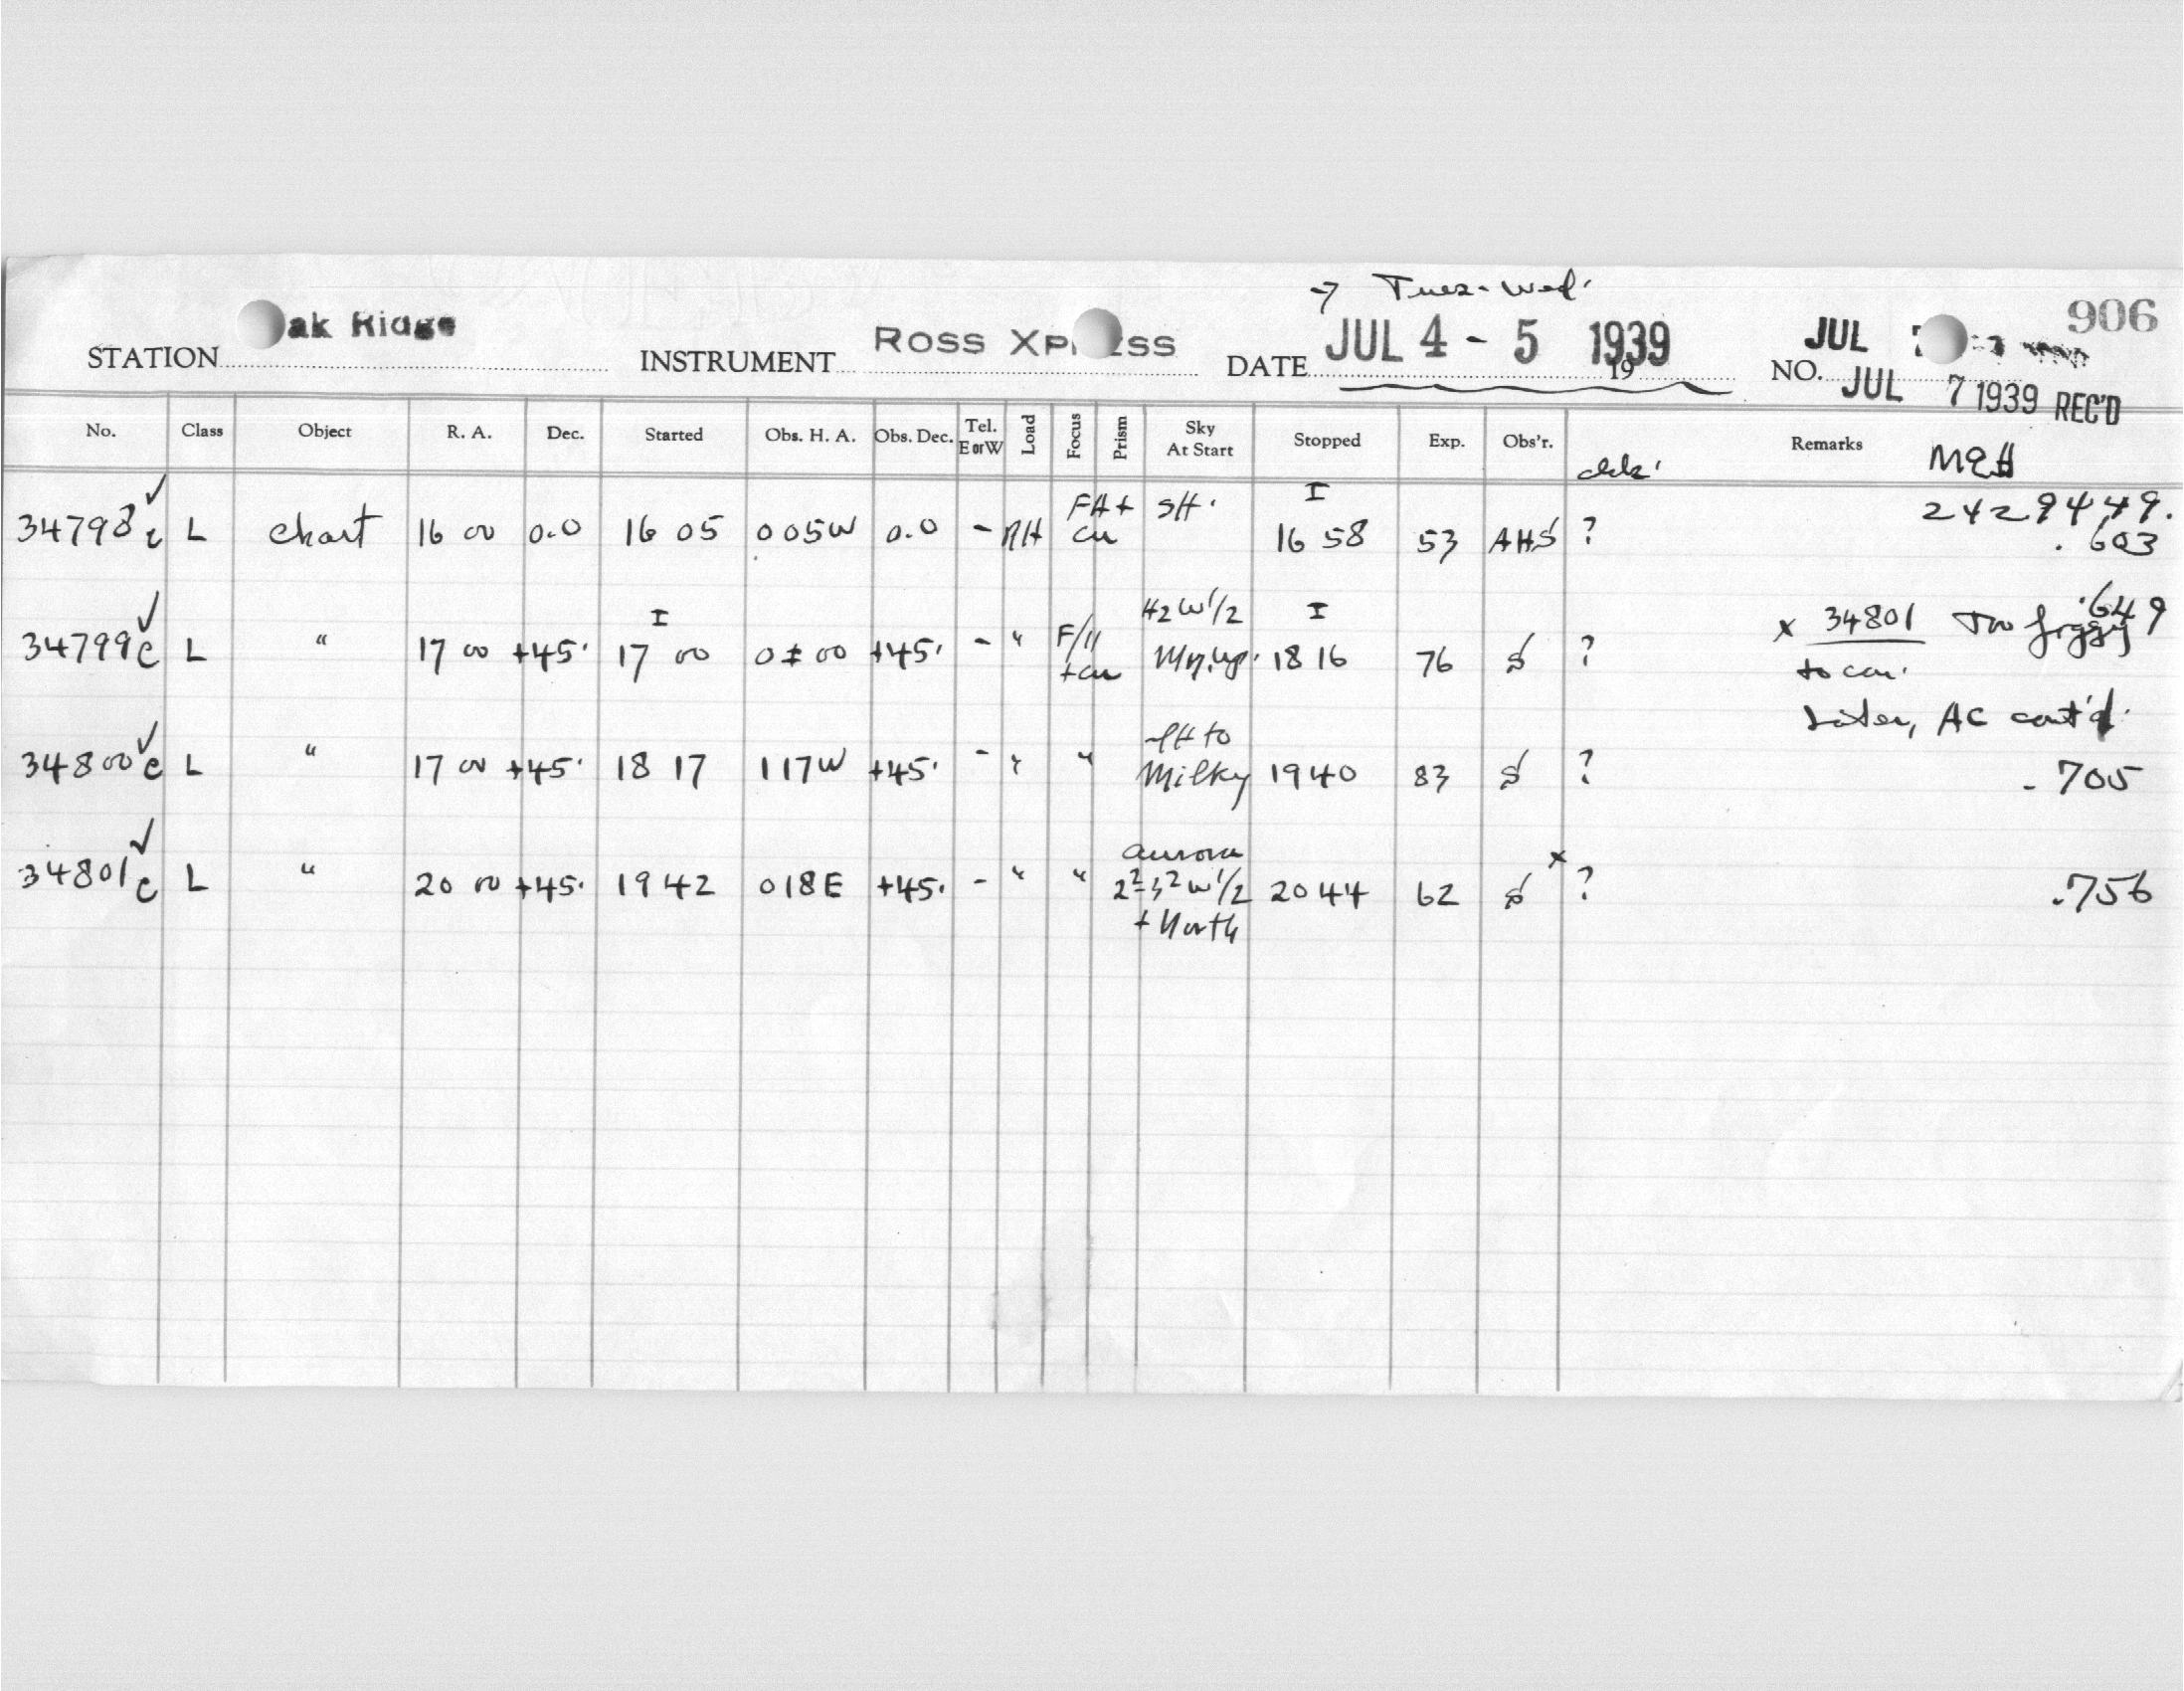 → Tues-Wed.
906
STATION ak Ridge INSTRUMENT Ross Xp ess DATE JUL 4 - 5 1939 19 NO. JUL
JUL 7 1939 REC'D
No. Class Object R. A. Dec. Started Obs. H. A. Obs. Dec. Tel. E or W Load Focus Prism Sky At Start Stopped Exp. Obs'r. Remarks
34798 L chart 16 00 0.0 16 05 0 05W 0.0 - RH FH+ SH. I 16 58 53 AHS ? 2429449.
.603
34799c L " 17 00 +45. I 17 00 00 +45. - " Hz W 1/2 I 18 16 76 S ? .649
x 34801 Too foggy
to con.
Later, AC cont'd.
34800c L " 17 00 +45. 18 17 1 17W +45. - " " to Milky 19 40 83 S ? .705
34801c L " 20 00 +45. 19 42 0 18E +45. - " " aurora W 1/2 + North 20 44 62 S x ? .756